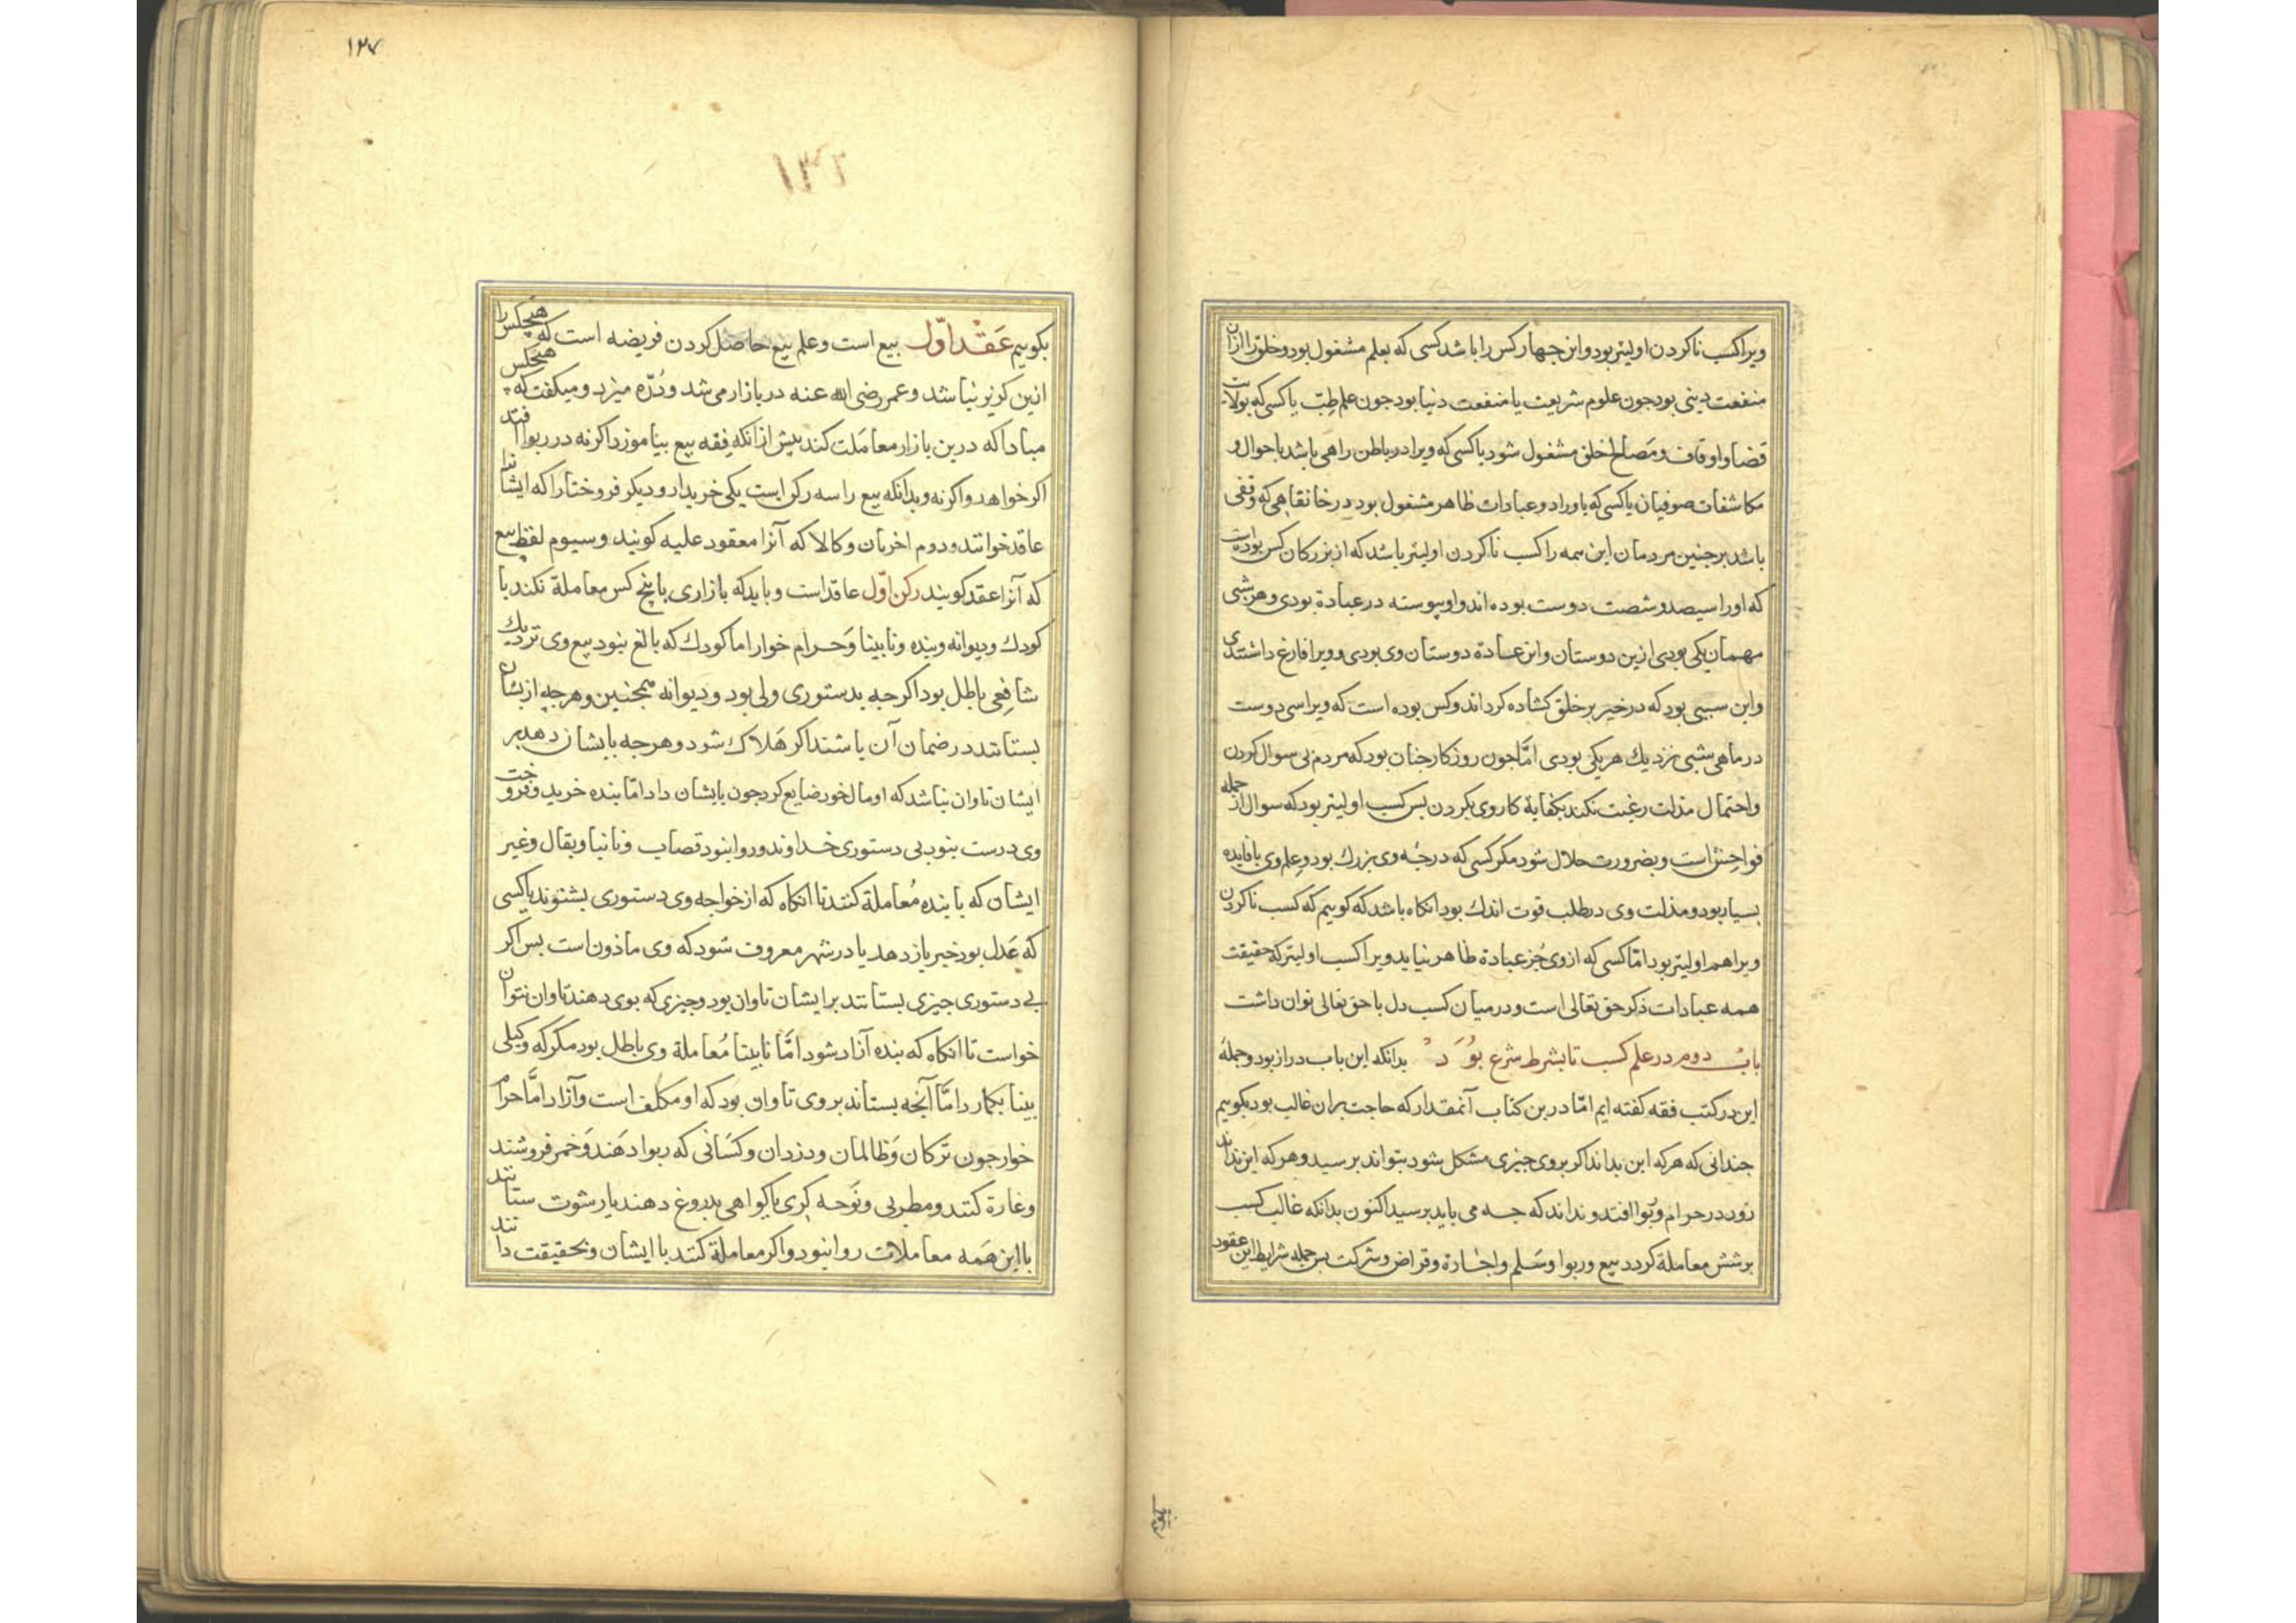 ویرا کسب ناکردن اولیتر بود و این جهار کس را باشد کسی که بعلم مشغول بود و خلق را ازان
منفعت دینی بود جون علوم شریعت یا منفعت دنیا بود جون علم طبّ یا کسی که بولایت
قضا و اوقاف و مصالح خلق مشغول شود یا کسی که ویرا در باطن راهی باشد باحوال و
مکاشفات صوفیان یا کسی که باوراد و عبادات ظاهر مشغول بود در خانقاهی که وقفی
باشد بر جنین مردمان این همه را کسب ناکردن اولیتر باشد که از بزرکان کس بوده است
که اورا سیصد و شصت دوست بوده اند و او پیوسته در عبادة بودی و هر شبی
مهمان یکی بودی ازین دوستان و این عبادة دوستان وی بودی و ویرا فارغ داشتندی
و این سببی بود که در خیر بر خلق کشاده کرداند و کس بوده است که ویرا سی دوست
در ماهی شبی نزدیك هر یکی بودی امّا جون روزکار جنان بود که مردم بی سوال کردن
و احتمال مذلت رغبت نکند بکفایة کار وی بکردن بس کسب اولیتر بود که سوال از جمله
فواحش است و بضرورت حلال شود مکر کسی که درجهٔ وی بزرك بود و علم وی با فایده
بسیار بود و مذلت وی در طلب قوت اندك بود انکاه باشد که کوییم که کسب ناکردن
ویرا هم اولیتر بود امّا کسی که از وی جُز عبادة ظاهر نیاید ویرا کسب اولیتر که حقیقت
همه عبادات ذکر حق تعالی است و در میان کسب دل با حق تعالی توان داشت
بابْ دوم در علم کسب تا بشرط شرع بُوَدْ بدانکه این باب دراز بود و جملهٔ
این در کتب فقه کفته ایم امّا درین کتاب آنمقدار که حاجت بران غالب بود بکوییم
جندانی که هر که این بداند اکر بر وی جیزی مشکل شود بتواند برسید و هر که این نداند
زود در حرام و ربوا افتد و نداند که جه می باید برسید اکنون بدانکه غالب کسب
بر شش معاملة کردد بیع و ربوا و سَلم و اجارة و قراض و شرکت بس جمله شرایط این عقود
بکوییم
۱۳۷
۱۳۲
بکوییم عَقْد اوّل بیع است و علم بیع حاصل کردن فریضه است که هیجکس را
ازین کریز نباشد و عمر رضی الله عنه در بازار می شد و دُرّه میزد و میکفت که هیجکس
مبادا که درین بازار معامَلت کند بیش از انکه فقه بیع بیاموزد اکرنه در ربوا افتد
اکر خواهد و اکرنه و بدانکه بیع را سه رکن است یکی خریدار و دیکر فروختار که ایشانرا
عاقد خوانند و دوم اخریان و کالا که آنرا معقود علیه کویند و سیوم لفظ بیع
که آنرا عقد کویند رکن اوّل عاقد است و باید که بازاری با پنج کس معاملة نکند با
کودك و دیوانه و بنده و نابینا و حرام خوار اما کودك که بالغ نبود بیع وی نزدیك
شافِعی باطل بود اکرجه بدستوری ولی بود و دیوانه همجنین و هرجه ازیشان
بستانند در ضمان آن باشند اکر هَلاك شود و هرجه بایشان دهد بر
ایشان تاوان نباشد که او مال خود ضایع کرد جون بایشان داد امّا بنده خرید و فروخت
وی درست نبود بی دستوری خداوند و روا نبود قصاب و نانبا و بقال و غیر
ایشان که با بنده مُعاملة کنند تا انکاه که از خواجه وی دستوری بشنوند یا کسی
که عَدل بود خبر باز دهد یا در شهر معروف شود که وی ماذون است بس اکر
بی دستوری جیزی بستانند بر ایشان تاوان بود و جیزی که بوی دهند تاوان نتوان
خواست تا انکاه که بنده آزاد شود امَّا نابینا مُعاملة وی باطل بود مکر که وکیلی
بینا بکمارد امَّا آنجه بستاند بر وی تاوان بود که او مکلف است و آزاد امَّا حرام
خوار جون تَرکان وَ ظالمان و دزدان و کسَانی که ربوا دَهند وَ خمر فروشند
و غارة کنند و مطربی و نَوحه کری یا کواهی بدروغ دهند یا رشوت ستانند
با این هَمه معاملات روا نبود و اکر معاملة کنند با ایشان و بحقیقت دانند